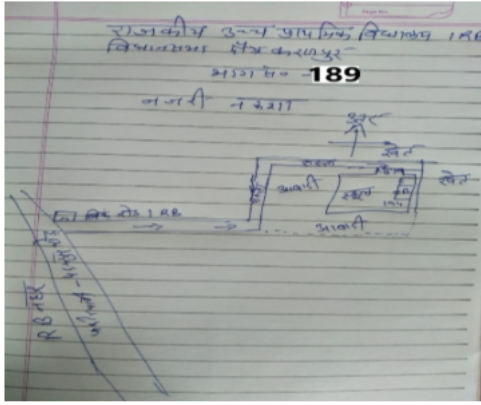 राजकीय उच्च प्राथमिक विद्यालय 1RB
विधानसभा क्षेत्र करणपुर
भाग सं० - 189
नजरी नक्शा
उत्तर
खेत
रास्ता
खेत
आबादी
स्कूल
आबादी
लिंक रोड 1RB
RB नहर